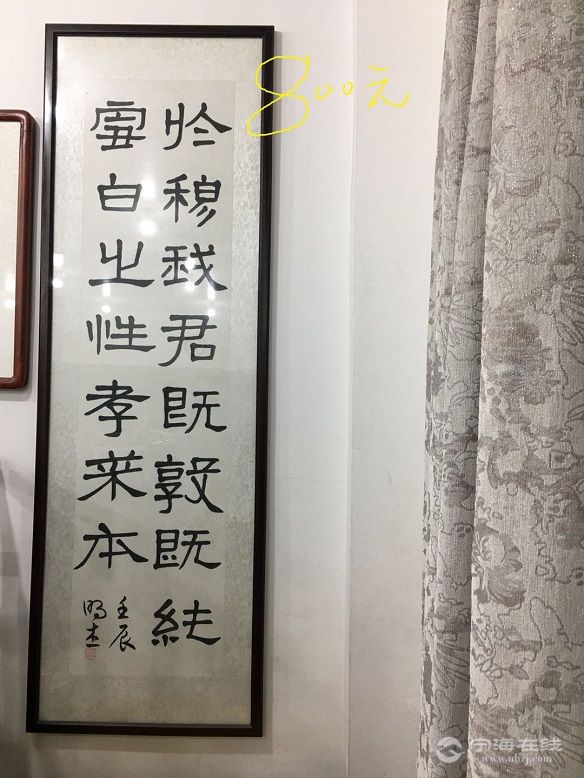 於穆我君既敦既純
雪白之性孝本
壬辰
明杰
800元
宁海在线
www.nhzj.com